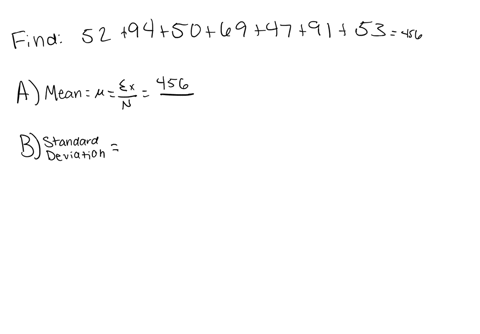 Find: 52 +94+50+69+47+91+53=456
A) Mean = μ = Σx/N = 456
B) Standard Deviation =